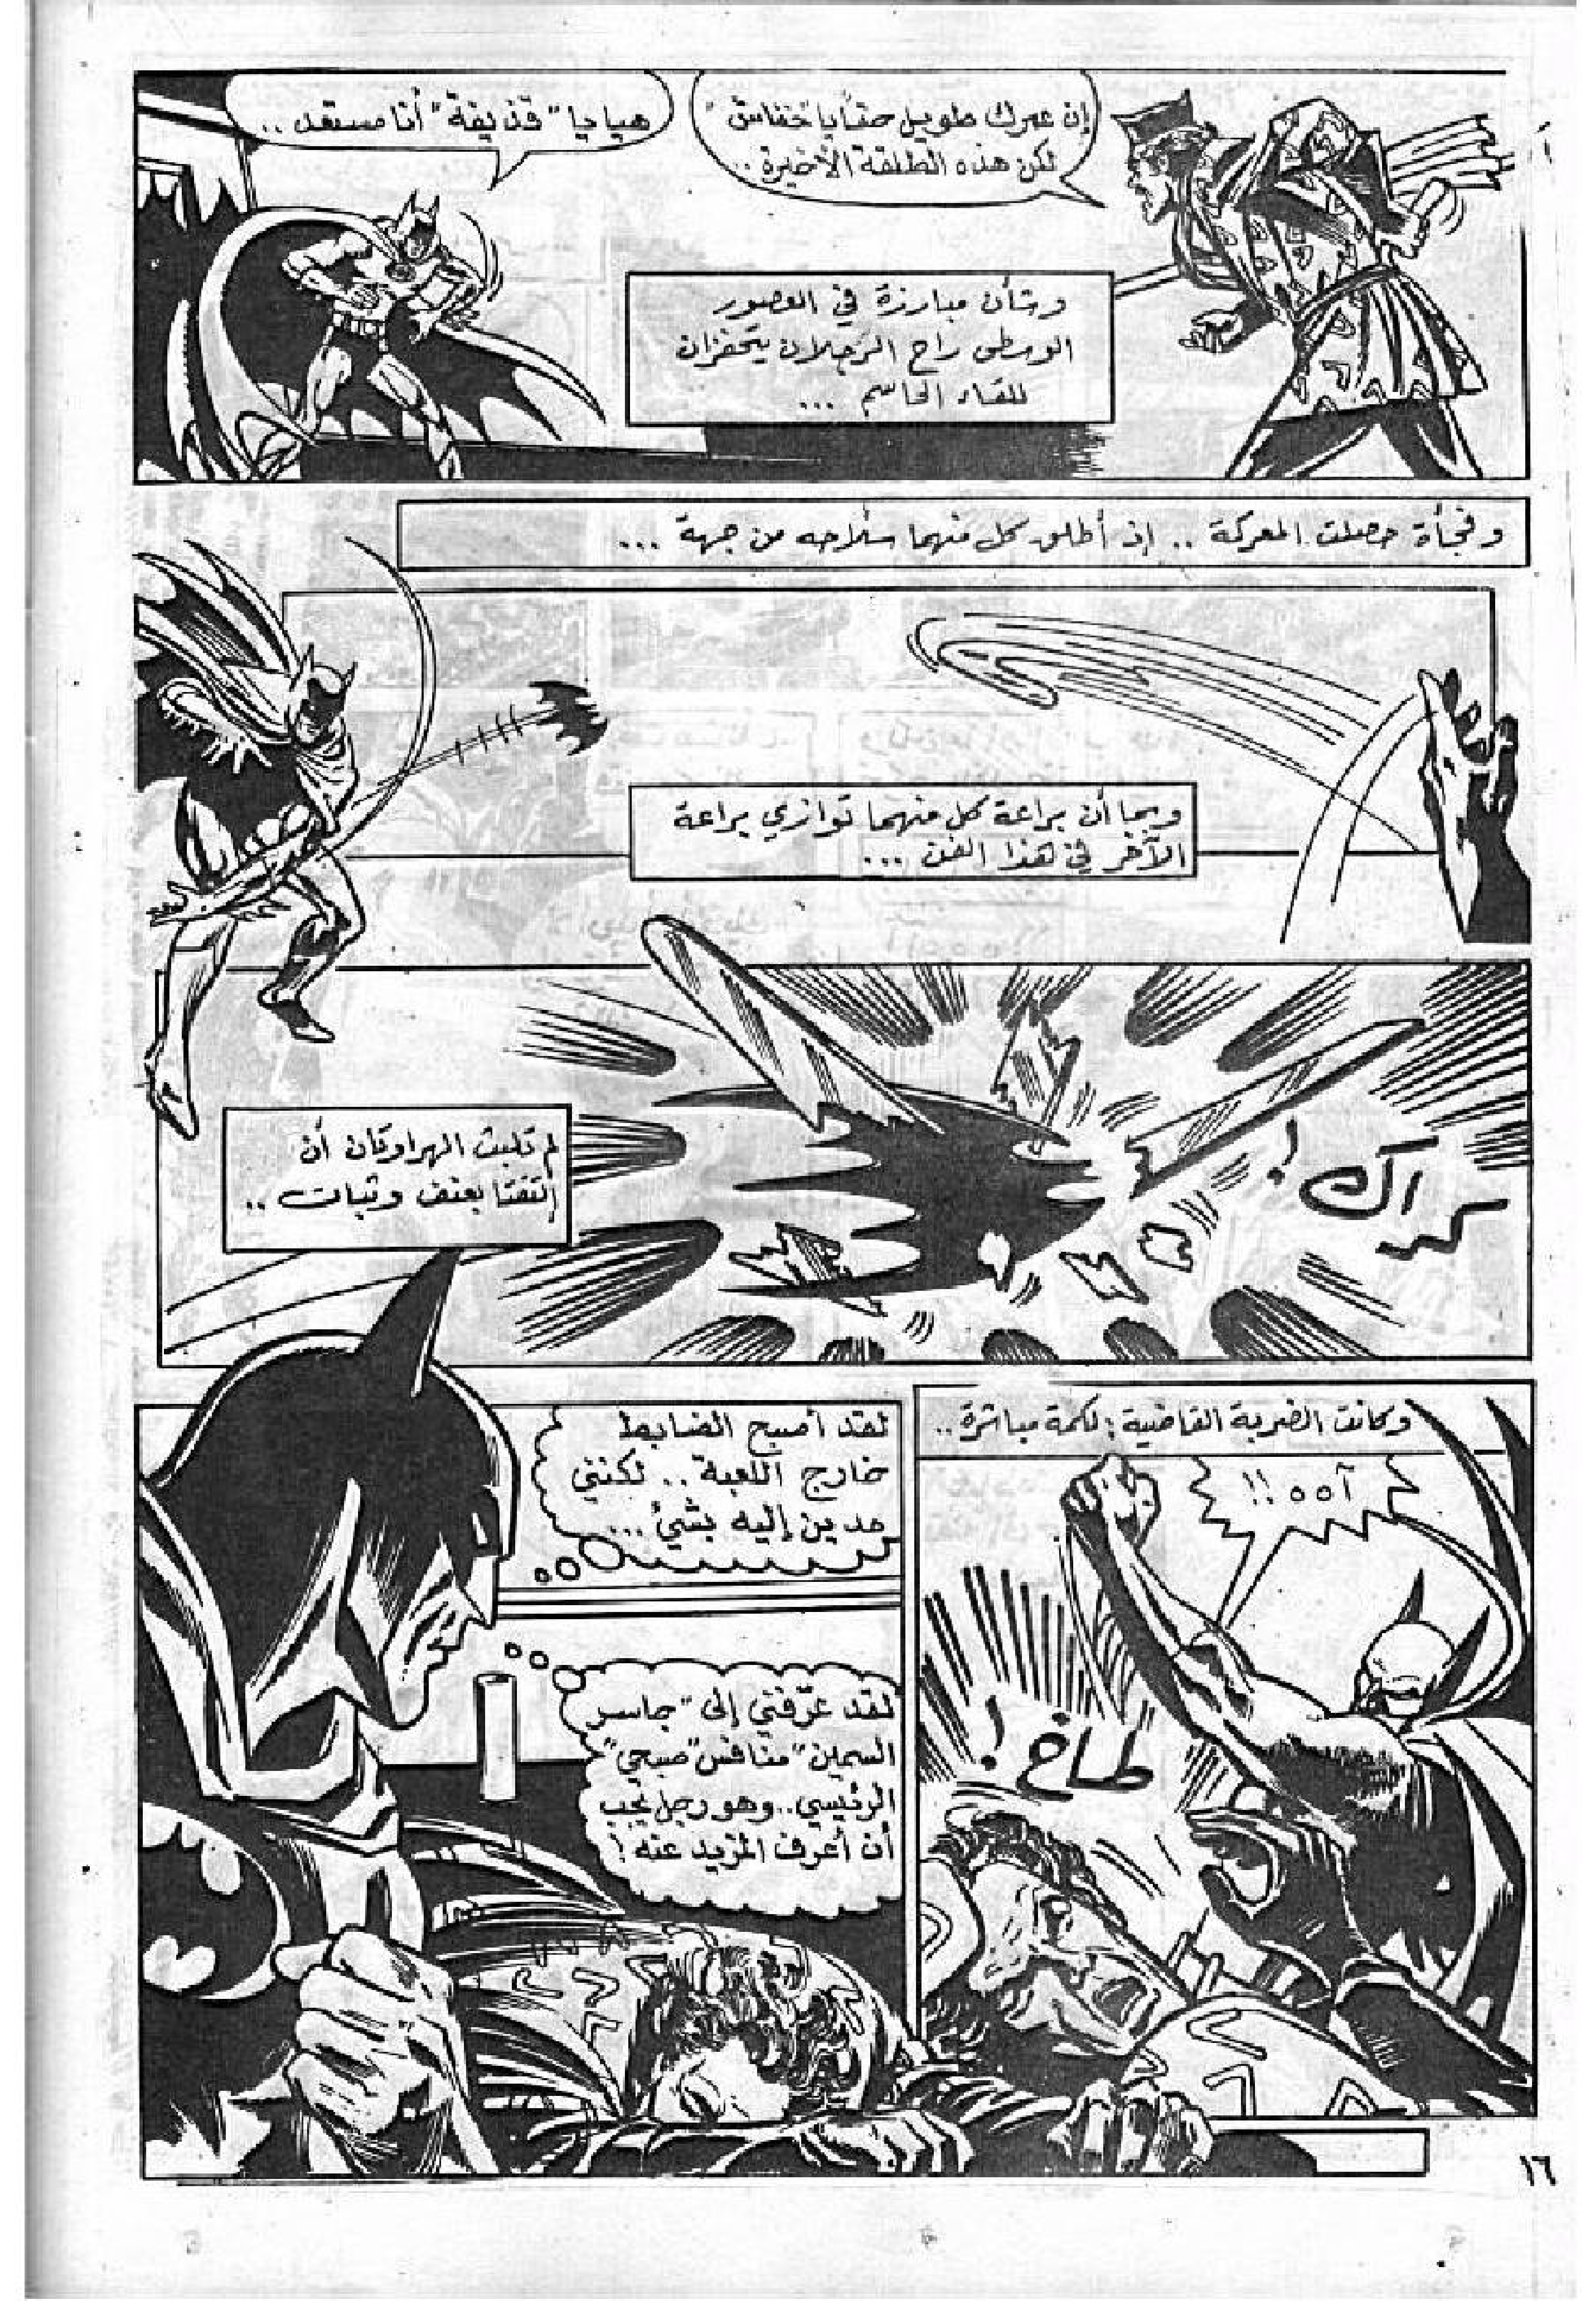 إن عمرك طويل حقاً يا خفاش
لكن هذه الطلقة الأخيرة..
هيا يا "قذيفة" أنا مستعد..
وشأن مبارزة في العصور
الوسطى راح الرّجلان يتحفزان
للقاء الحاسم ...
وفجأة حصلت المعركة .. إذ أطلق كل منهما سلاحه من جهة ...
وبما أن براعة كل منهما توازي براعة
الآخر في هذا الفن ...
لم تلبث الهراوتان أن
إلتقتا بعنف وثبات ..
راك!
وكانت الضربة القاضية: لكمة مباشرة..
آه ه!!
طاخ!
لقد أصبح الضابط
خارج اللعبة .. لكنني
مدين إليه بشيء...
لقد عرّفني إلى "جاسر
السمين" منافس "صبحي"
الرئيسي.. وهو رجل يجب
أن أعرف المزيد عنه!
١٦